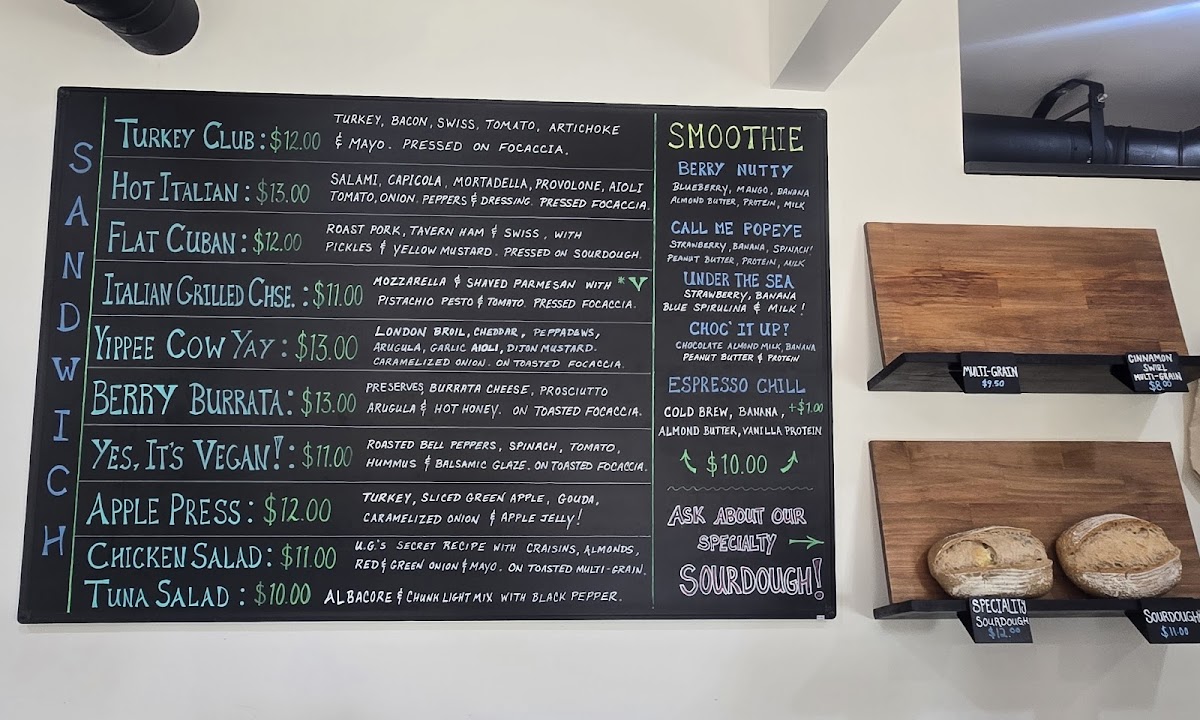 SANDWICH
TURKEY CLUB: $12.00
TURKEY, BACON, SWISS, TOMATO, ARTICHOKE
& MAYO. PRESSED ON FOCACCIA.
HOT ITALIAN: $13.00
SALAMI, CAPICOLA, MORTADELLA, PROVOLONE, AIOLI
TOMATO, ONION, PEPPERS & DRESSING. PRESSED FOCACCIA.
FLAT CUBAN: $12.00
ROAST PORK, TAVERN HAM & SWISS, WITH
PICKLES & YELLOW MUSTARD. PRESSED ON SOURDOUGH.
ITALIAN GRILLED CHSE.: $11.00
MOZZARELLA & SHAVED PARMESAN WITH *V
PISTACHIO PESTO & TOMATO. PRESSED FOCACCIA.
YIPPEE COW YAY: $13.00
LONDON BROIL, CHEDDAR, PEPPADEWS,
ARUGULA, GARLIC AIOLI, DIJON MUSTARD.
CARAMELIZED ONION. ON TOASTED FOCACCIA.
BERRY BURRATA: $13.00
PRESERVES, BURRATA CHEESE, PROSCIUTTO
ARUGULA & HOT HONEY. ON TOASTED FOCACCIA.
YES, IT'S VEGAN!: $11.00
ROASTED BELL PEPPERS, SPINACH, TOMATO,
HUMMUS & BALSAMIC GLAZE. ON TOASTED FOCACCIA.
APPLE PRESS: $12.00
TURKEY, SLICED GREEN APPLE, GOUDA,
CARAMELIZED ONION & APPLE JELLY!
CHICKEN SALAD: $11.00
U.G.'S SECRET RECIPE WITH CRAISINS, ALMONDS,
RED & GREEN ONION & MAYO. ON TOASTED MULTI-GRAIN.
TUNA SALAD: $10.00
ALBACORE & CHUNK LIGHT MIX WITH BLACK PEPPER.
SMOOTHIE
BERRY NUTTY
BLUEBERRY, MANGO, BANANA
ALMOND BUTTER, PROTEIN, MILK
CALL ME POPEYE
STRAWBERRY, BANANA, SPINACH!
PEANUT BUTTER, PROTEIN, MILK
UNDER THE SEA
STRAWBERRY, BANANA
BLUE SPIRULINA & MILK!
CHOC' IT UP!
CHOCOLATE ALMOND MILK, BANANA
PEANUT BUTTER & PROTEIN
ESPRESSO CHILL
COLD BREW, BANANA, +$1.00
ALMOND BUTTER, VANILLA PROTEIN
$10.00
ASK ABOUT OUR
SPECIALTY
SOURDOUGH!
MULTI-GRAIN
$9.50
CINNAMON
SWIRL
MULTI-GRAIN
$8.00
SPECIALITY
SOURDOUGH
$12.00
SOURDOUGH
$11.00